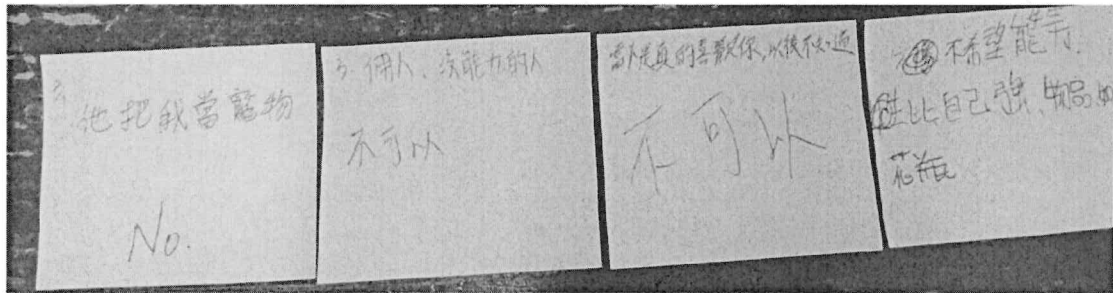 3.
他把我當寵物
No.
3. 佣人、沒能力的人
不可以
當不是真的喜歡你,以後不
不可以
不希望能力
比自己強、物品如
花瓶